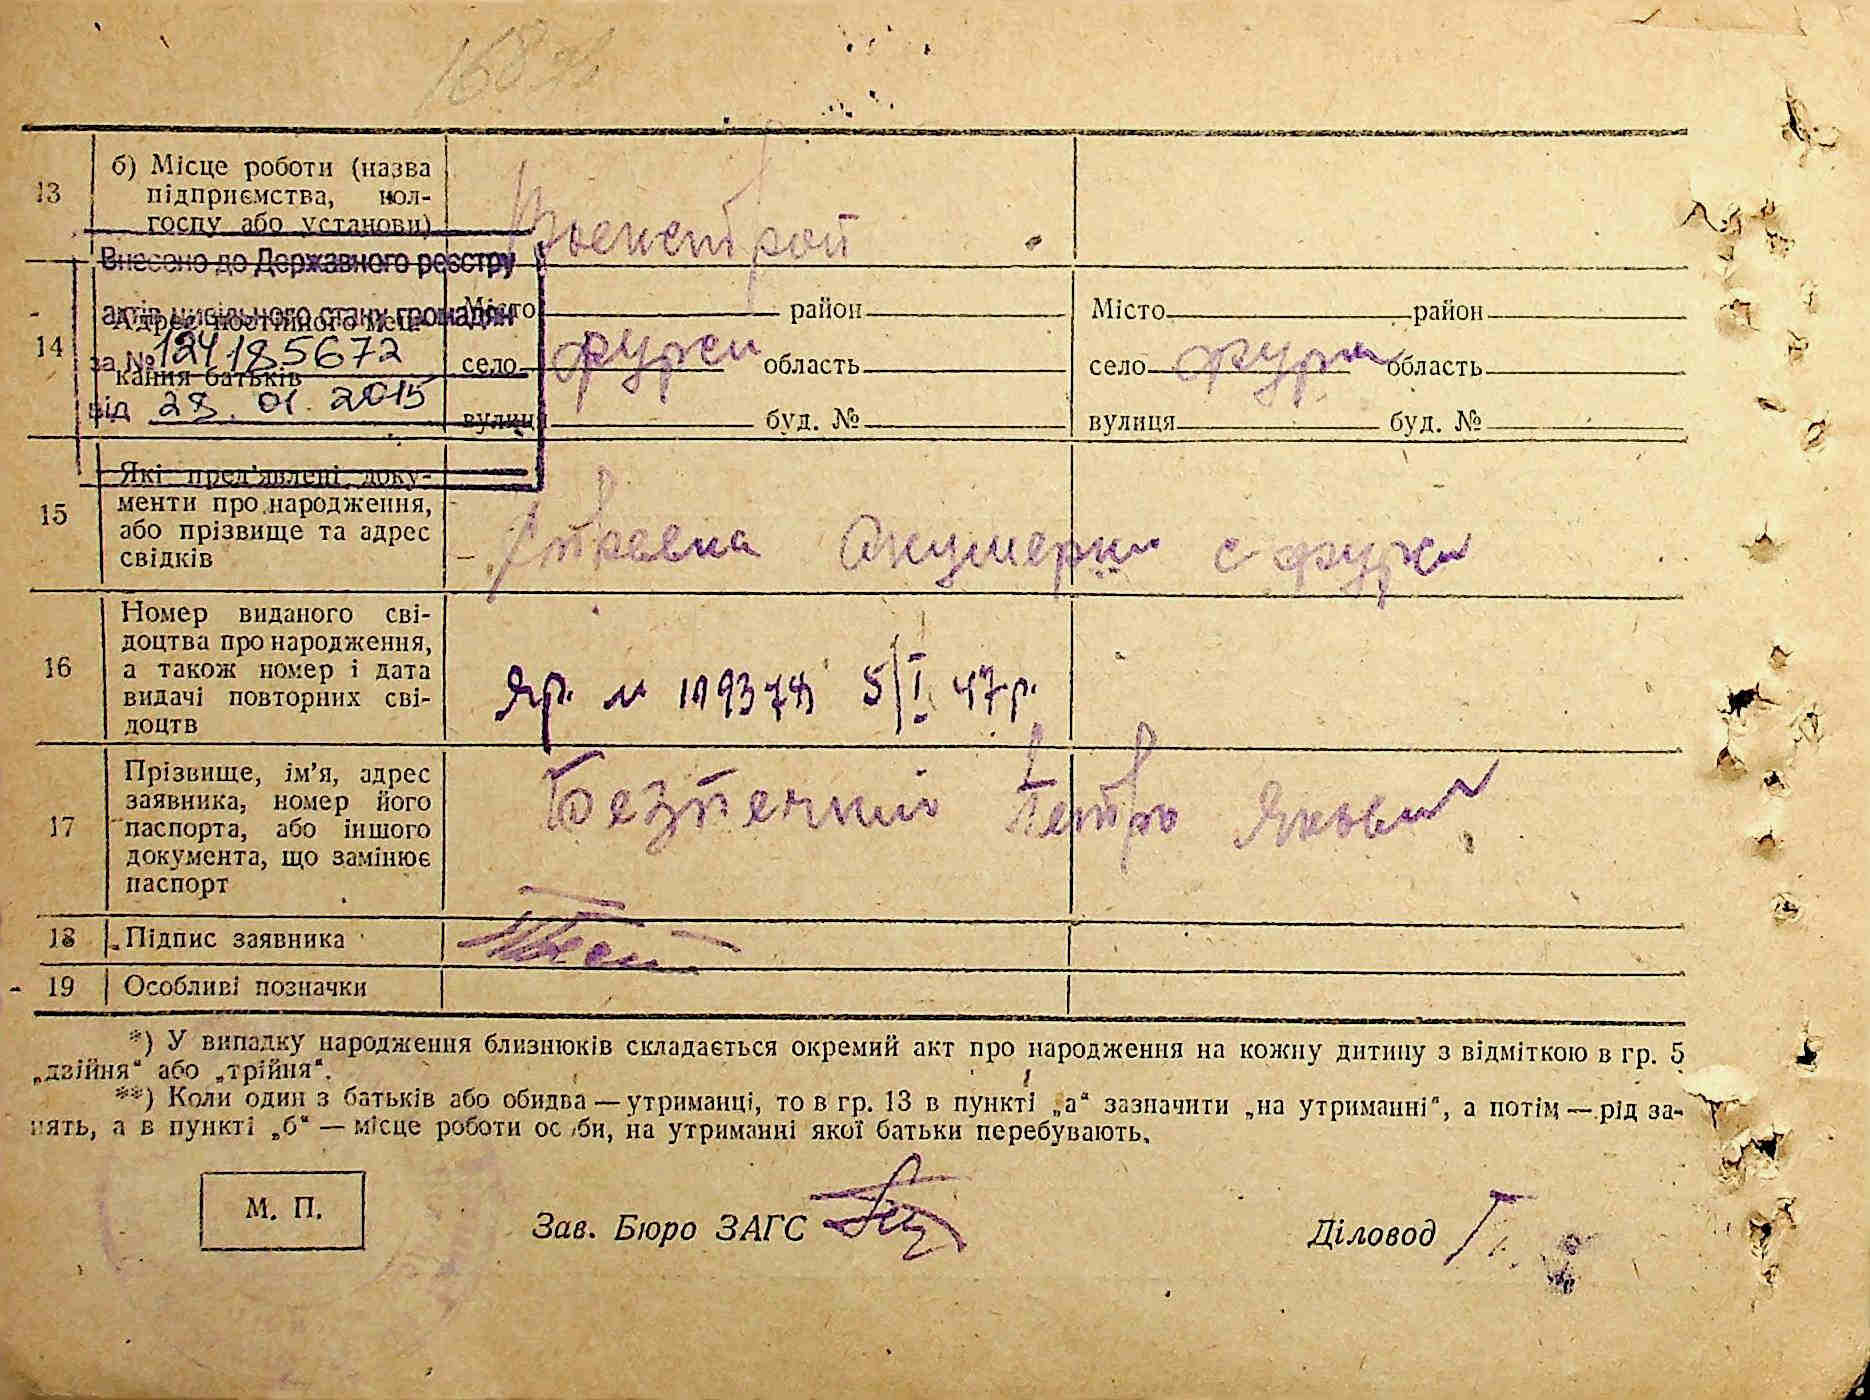 13 б) Місце роботи (назва
підприємства, кол-
госпу або установи)
Военстрой
Внесено до Державного реєстру
актів цивільного стану громадян
за № 124185672
від 28.01.2015
14 Адрес постійного меш-
кання батьків
Місто район
село Фурси область
вулиця буд. №
Місто район
село Фурси область
вулиця буд. №
15 Які пред'явлені доку-
менти про народження,
або прізвище та адрес
свідків
акушерки с Фурси
16 Номер виданого сві-
доцтва про народження,
а також номер і дата
видачі повторних сві-
доцтв
Яр. № 5/I 47 р.
17 Прізвище, ім'я, адрес
заявника, номер його
паспорта, або іншого
документа, що замінює
паспорт
Безпечний Петро Якович
18 Підпис заявника
19 Особливі позначки
*) У випадку народження близнюків складається окремий акт про народження на кожну дитину з відміткою в гр. 5
„двійня“ або „трійня“.
**) Коли один з батьків або обидва — утриманці, то в гр. 13 в пункті „а“ зазначити „на утриманні“, а потім — рід за-
нять, а в пункті „б“ — місце роботи особи, на утриманні якої батьки перебувають.
М. П.
Зав. Бюро ЗАГС
Діловод